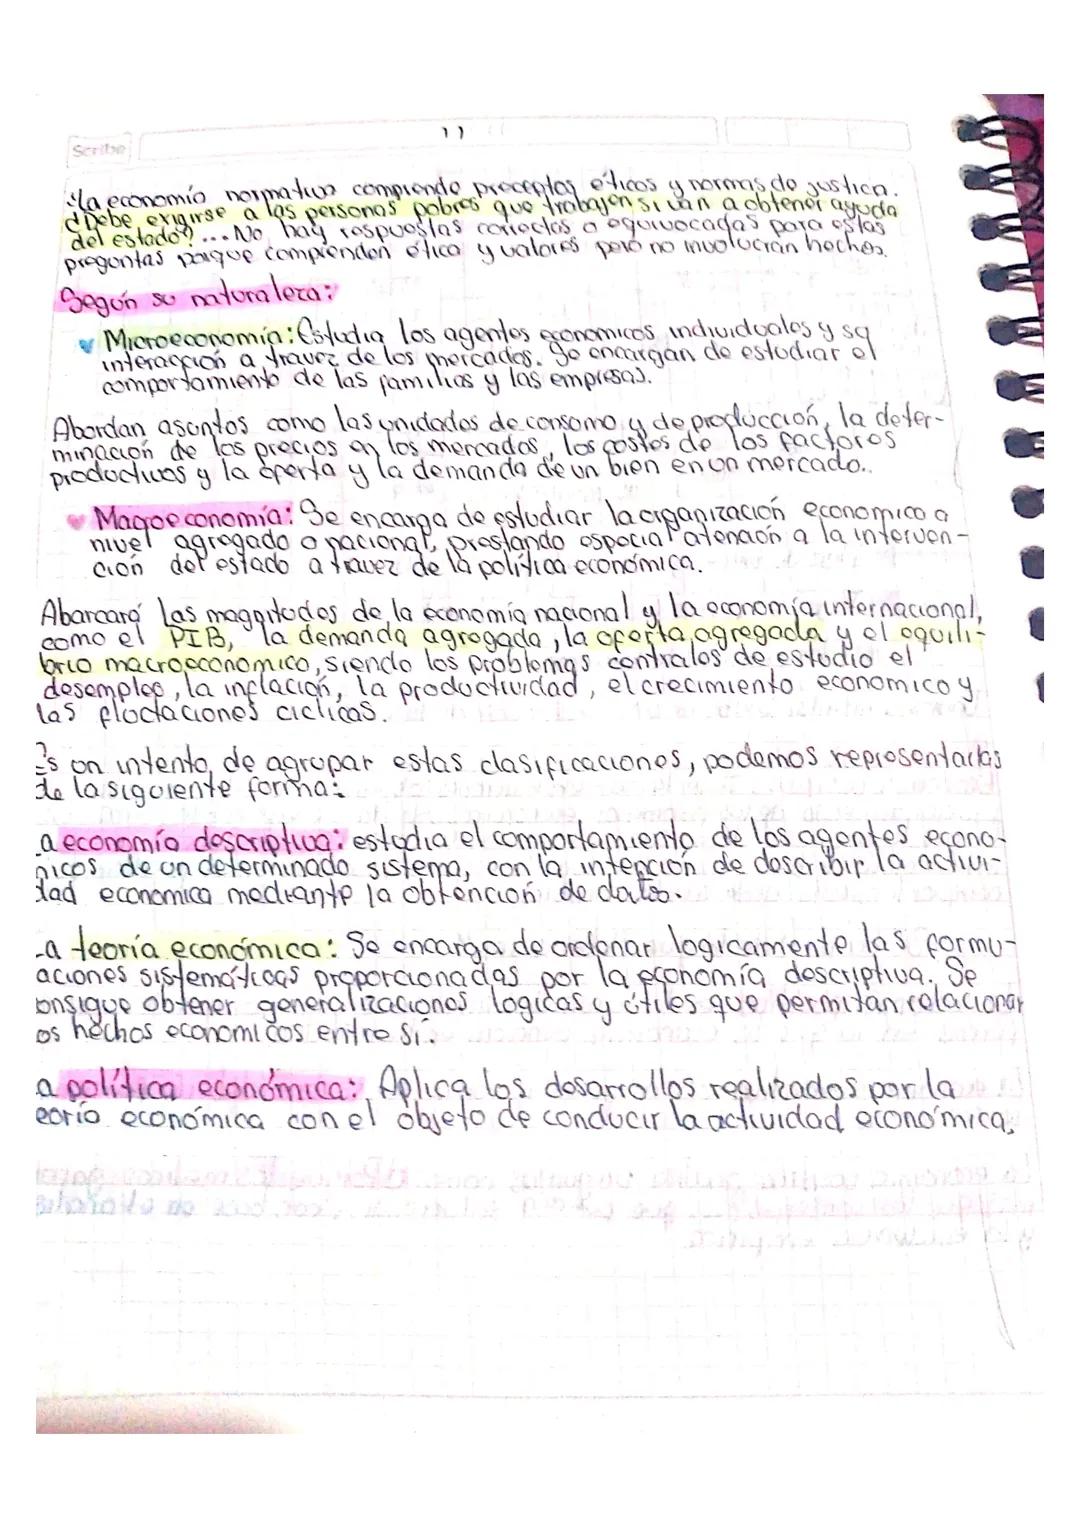 Scribe
"la economía normativa comprende preceptos éticos y normas de justicia.
¿Debe exigirse a las personas pobres que trabajen si van a obtener ayuda
del estado? ... No hay respuestas correctas o equivocadas para estas
preguntas porque comprenden ética y valores pero no involucran hechos.
Según su naturaleza:
Microeconomía: Estudia los agentes economicos individuales y su
interacción a travez de los mercados. Se encargan de estudiar el
comportamiento de las familias y las empresas.
Abordan asuntos como las unidades de consumo y de producción, la deter-
minación de los precios en los mercados, los costos de los factores
productivos y la oferta y la demanda de un bien en un mercado..
Macroeconomía: Se encarga de estudiar la organización economico a
nivel agregado o nacional, prestando especial atención a la interven-
ción del estado a travez de la política económica.
Abarcará las magnitudes de la economía nacional y la economía internacional,
como el PIB, la demanda agregada, la oferta agregada y el equili-
brio macroeconomico, siendo los problemas centrales de estudio el
desempleo, la inflación, la productividad, el crecimiento economico y
las fluctaciones ciclicas.
Es un intento de agrupar estas clasificaciones, podemos representarlas
de la siguiente forma:
a economía descriptiva: estudia el comportamiento de los agentes econo-
micos de un determinado sistema, con la intención de describir la activi-
dad economica mediante la obtención de datos.
La teoría económica: Se encarga de ordenar logicamente las formu-
aciones sistemáticas proporcionadas por la economía descriptiva. Se
onsigue obtener generalizaciones logicas y útiles que permitan relacionar
os hechos economicos entre sí.
a política económica: Aplica los desarrollos realizados por la
eoría económica con el objeto de conducir la actividad económica.